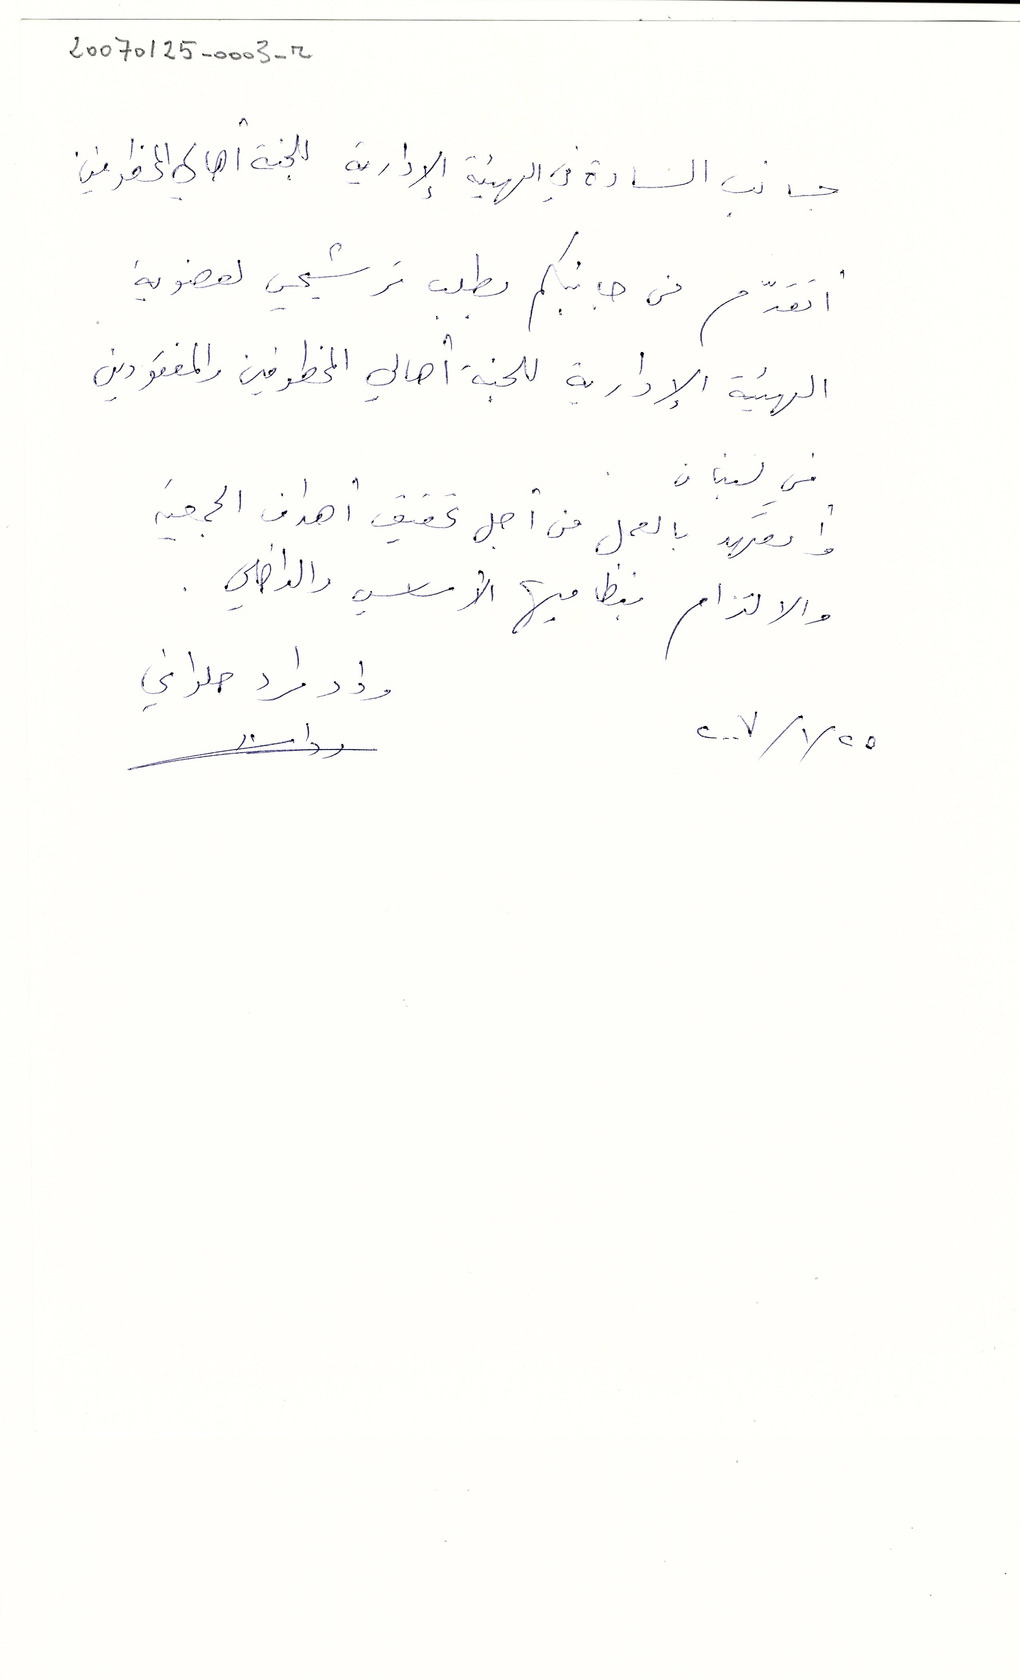 20070125-0003-r
جانب السادة في الهيئة الإدارية للجنة أهالي المخطوفين
أتقدّم من جانبكم بطلب ترشيحي لعضوية
الهيئة الإدارية للجنة أهالي المخطوفين والمفقودين
في لبنان .
وأتعهّد بالعمل من أجل تحقيق أهداف الجمعية
والالتزام بنظاميها الأساسي والداخلي .
وداد مراد حلواني
٢٥/١/٢٠٠٧
وداد